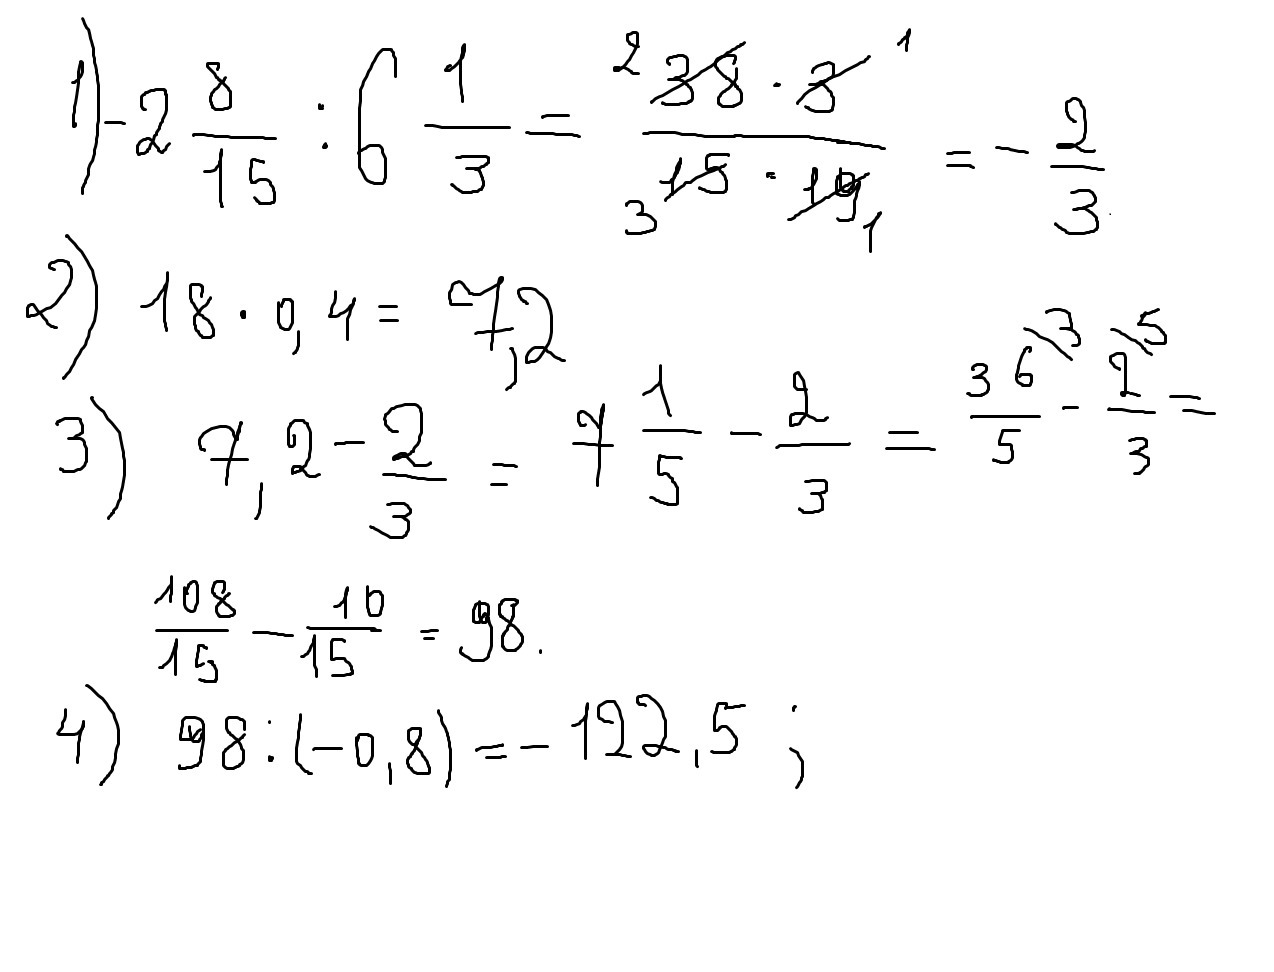 1) -2 8/15 : 6 1/3 = 2 38 · 3 1 / 3 15 · 19 1 = - 2/3
2) 18 · 0,4 = 7,2
3) 7,2 - 2/3 = 7 1/5 - 2/3 = 36\3 / 5 - 2\5 / 3 =
108/15 - 10/15 = 98.
4) 98 : (-0,8) = - 122,5 ;